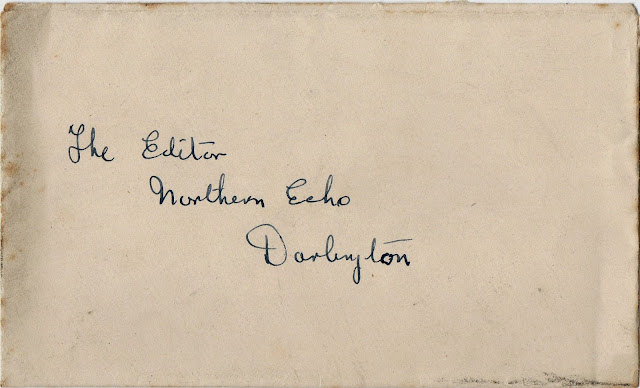 The Editor
Northern Echo
Darlington